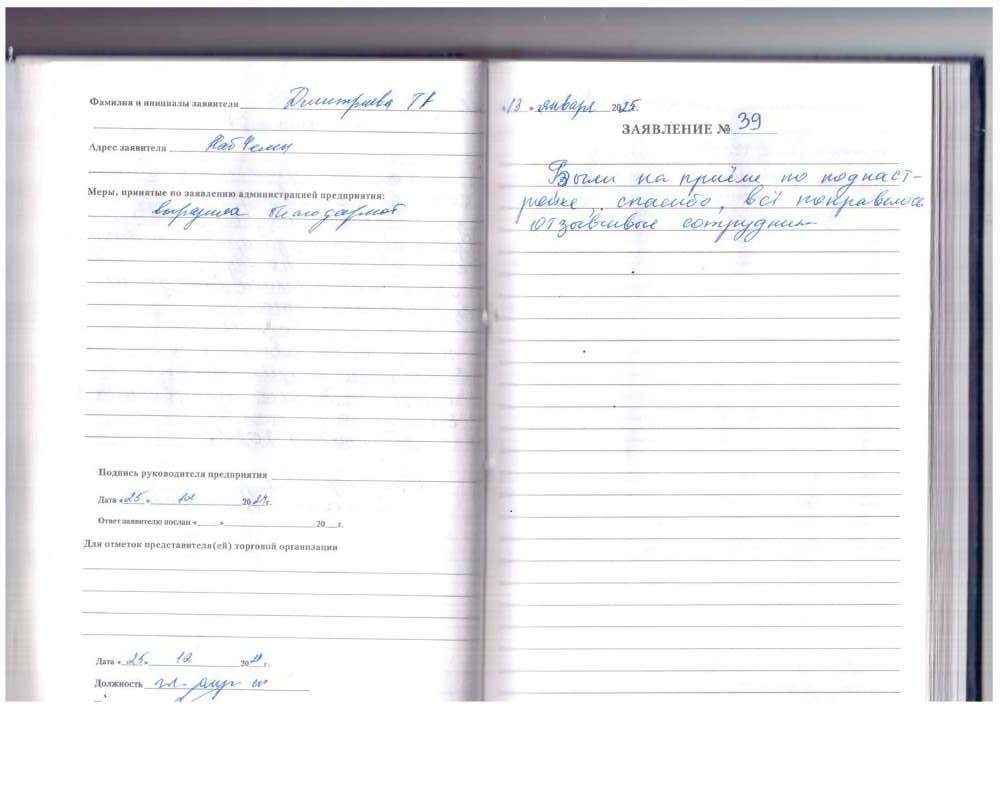 Фамилия и инициалы заявителя Дмитриева Т
Адрес заявителя Наб Челны
Меры, принятые по заявлению администрацией предприятия:
выразила благодарност
Подпись руководителя предприятия
Дата «25» 12 2024г.
Ответ заявителю послан «___» ___ 20__г.
Для отметок представителя(ей) торговой организации
Дата «25» 12 20 г.
Должность гл.
«13» января 2025г.
ЗАЯВЛЕНИЕ № 39
Были на приёме по поднаст-
ройке, спасибо, всё понравилось
отзывчивые сотрудники